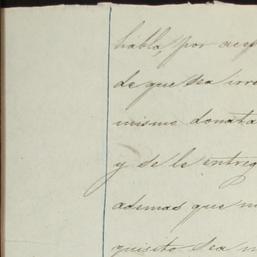 habla, por acep
de que sea irre
mismo donata
y se le entreg
ademas que m
quisito sea n